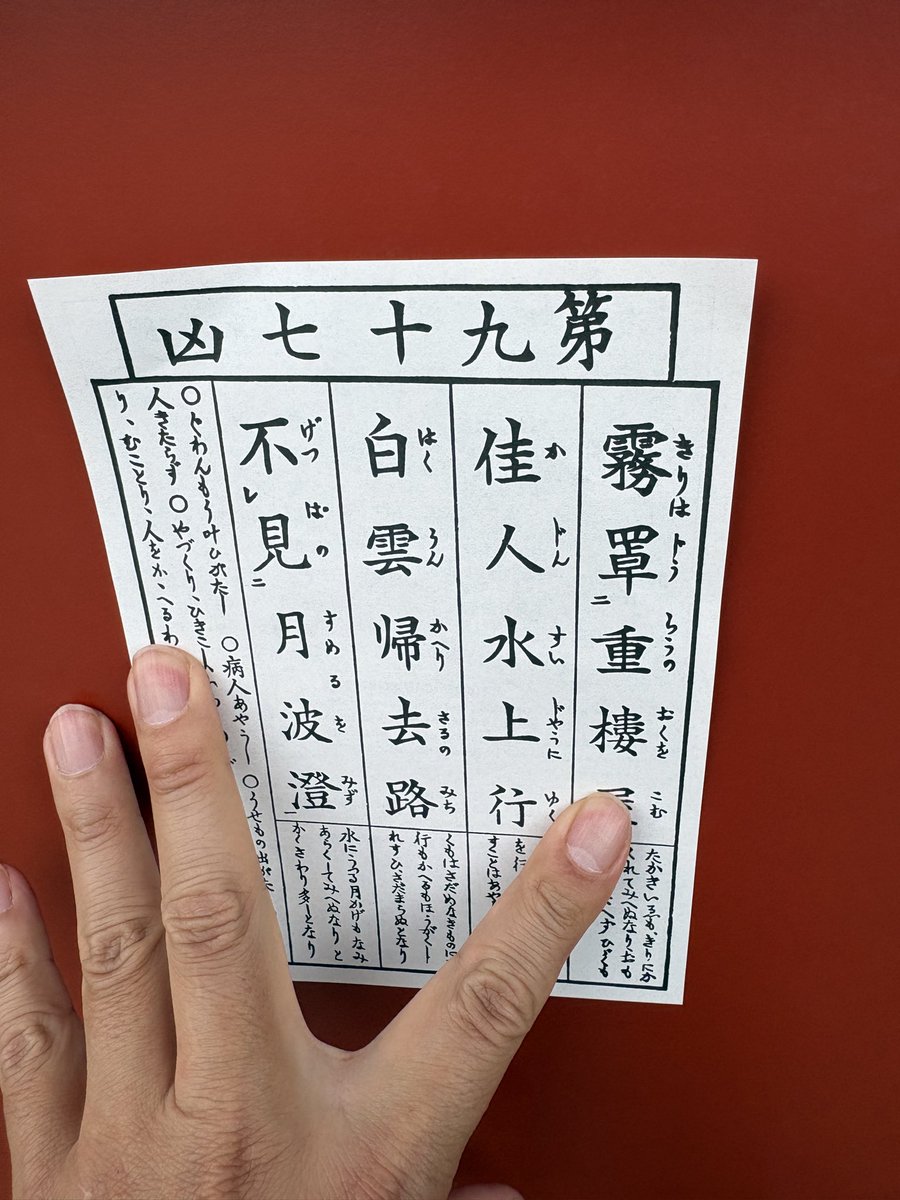 第九十七凶
霧罩二重樓
きりは とう ろうの おくを こむ
佳人水上行
か じん すい じやうに ゆく
白雲帰去路
はく うん かへり さるの みち
不レ見二月波澄一
げつ ぱの すめる を みず
たかきいへも、ぎりにか
くれてみへぬなり、おも
へすひども
を行
すことはあや
くもはさだめなきものに
行もかへるもほうがくし
れずひさだまらぬとなり
水にうつる月かげもなみ
あらくしてみへぬなりと
かくさわり多しとなり
○ぐわんもう叶ひがたし ○病人あやうし ○うせもの出がた
人きたらず ○やづくり、ひきこし
り、むことり、人をかゝへるわ